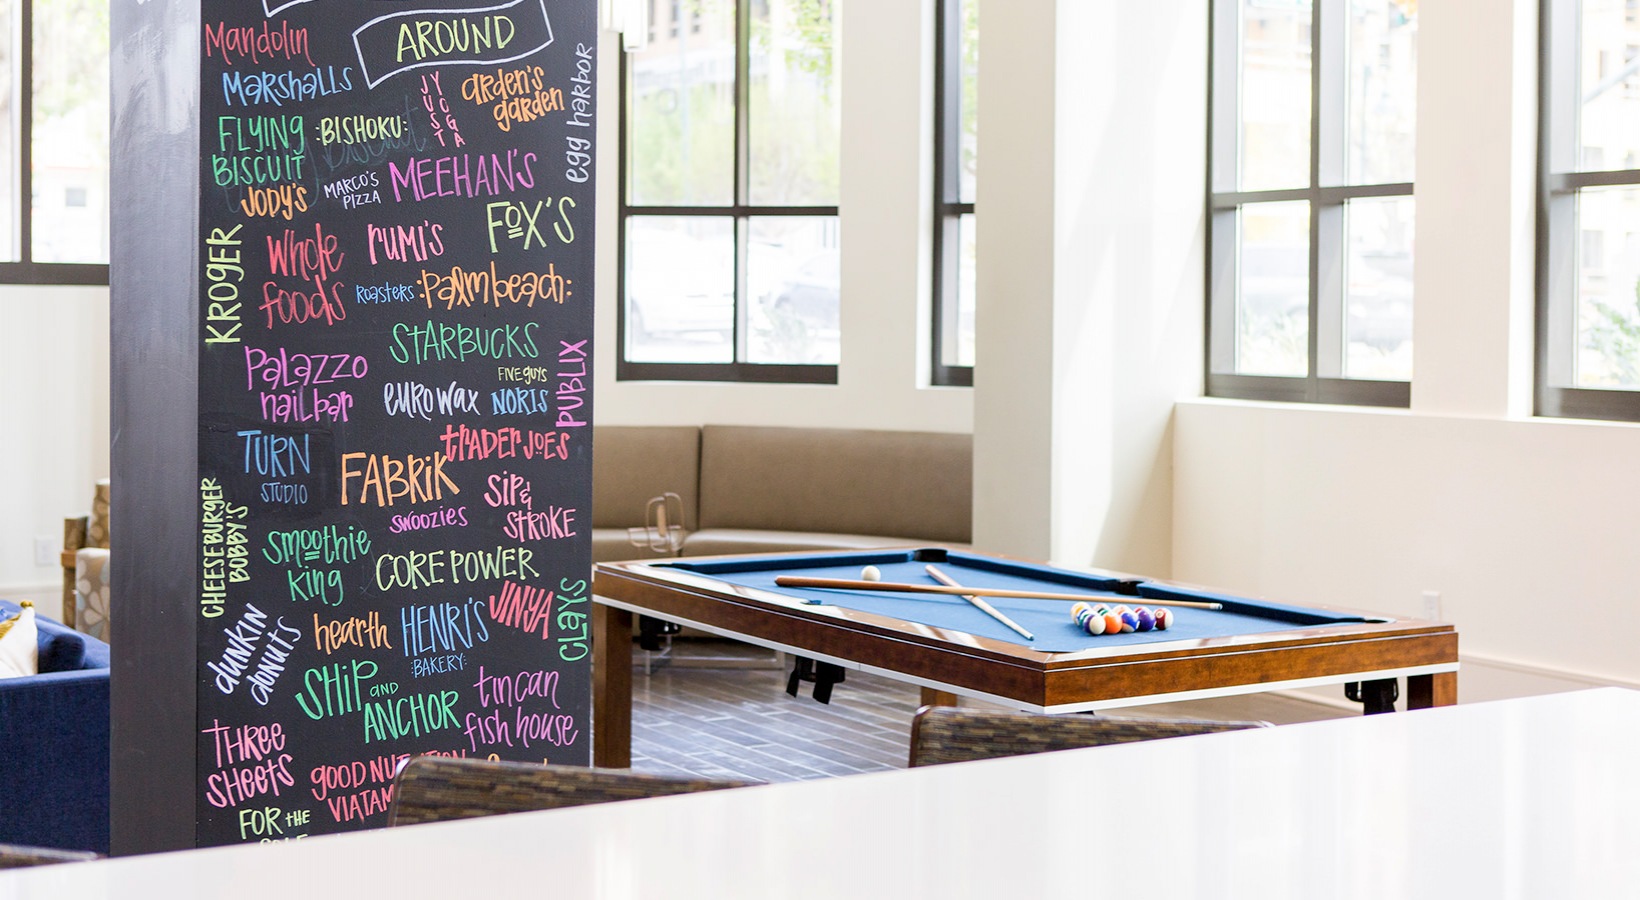 AROUND
Mandolin
MARSHALLS
JUST
YOGA
arden's
garden
egg harbor
FLYING
BISCUIT
:BISHOKU:
JODY'S
MARCO'S
PIZZA
MEEHAN'S
FOX'S
KROGER
whole
foods
rumi's
roasters
:palm beach:
STARBUCKS
PALAZZO
nail bar
FIVE GUYS
euro wax
NORIS
PUBLIX
TURN
STUDIO
TRADER JOES
FABRIK
SIP &
STROKE
SWOOZIES
CHEESEBURGER
BOBBY'S
smoothie
king
CORE POWER
dunkin
donuts
hearth
HENRI'S
:BAKERY:
VINYA
CLAYS
SHIP AND
ANCHOR
tin can
fish house
THREE
SHEETS
GOOD
VIATAM
FOR THE